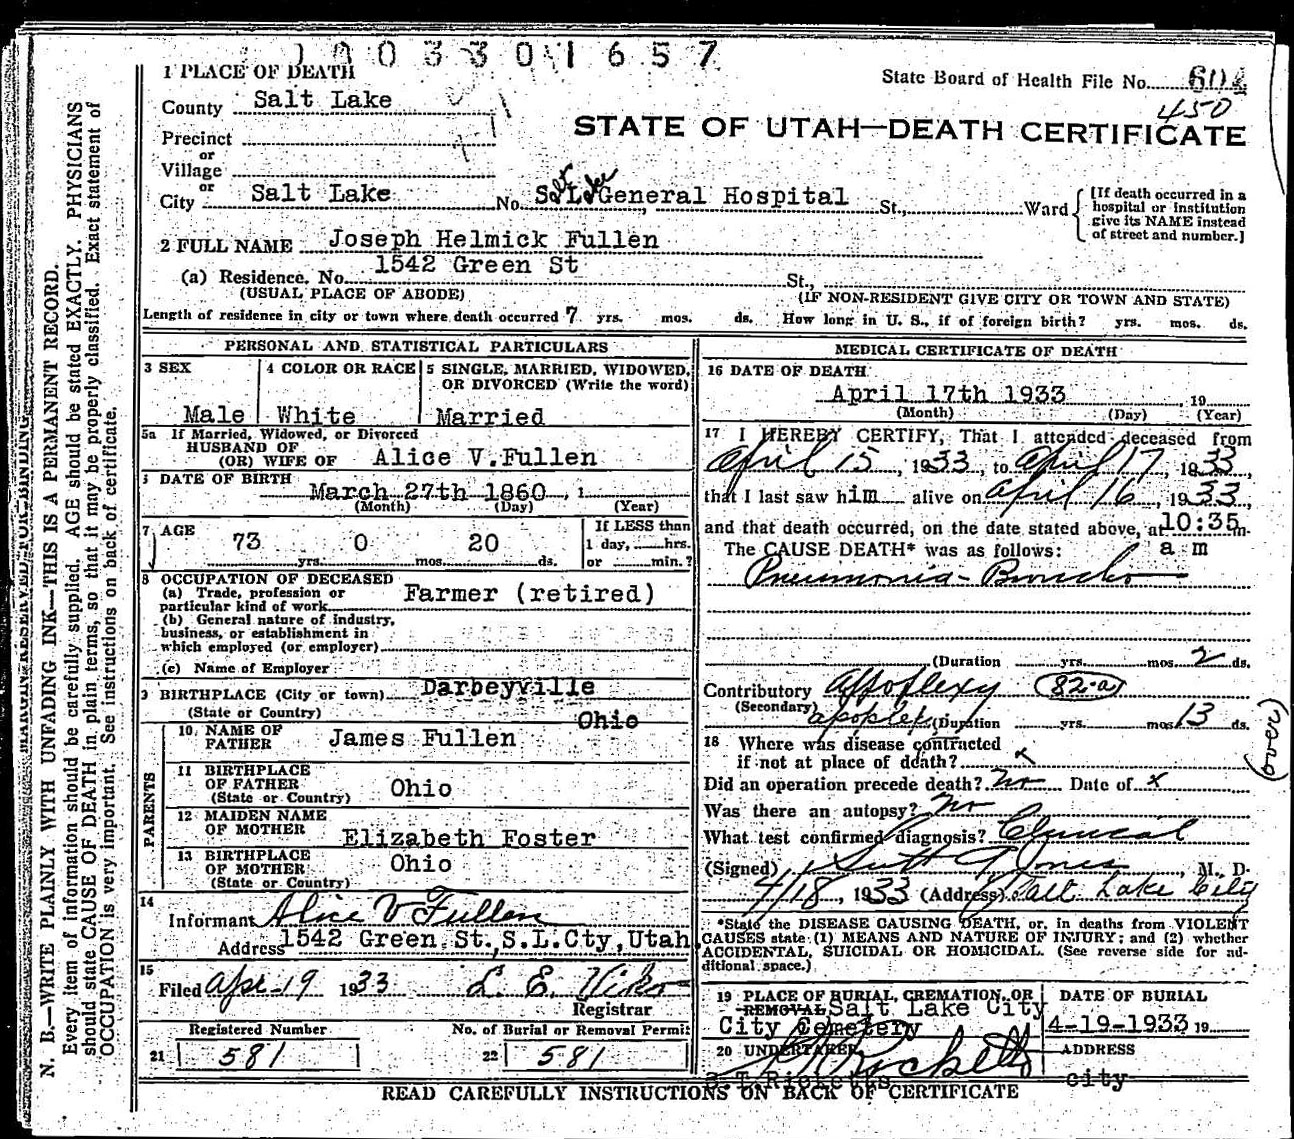 1003301657
1 PLACE OF DEATH
State Board of Health File No.
450
County Salt Lake
STATE OF UTAH—DEATH CERTIFICATE
Precinct
or
Village
or
City Salt Lake No. S. L. General Hospital St., Ward
Salt Lake
[If death occurred in a
hospital or institution
give its NAME instead
of street and number.]
2 FULL NAME Joseph Helmick Fullen
(a) Residence. No. 1542 Green St St.,
(USUAL PLACE OF ABODE) (IF NON-RESIDENT GIVE CITY OR TOWN AND STATE)
Length of residence in city or town where death occurred 7 yrs. mos. ds. How long in U. S., if of foreign birth? yrs. mos. ds.
PERSONAL AND STATISTICAL PARTICULARS
3 SEX
Male
4 COLOR OR RACE
White
5 SINGLE, MARRIED, WIDOWED,
OR DIVORCED (Write the word)
Married
5a If Married, Widowed, or Divorced
HUSBAND OF
(OR) WIFE OF Alice V.Fullen
DATE OF BIRTH
March 27th 1860, 1
(Month) (Day) (Year)
7 AGE
73 yrs. 0 mos. 20 ds.
If LESS than
1 day, hrs.
or min.?
8 OCCUPATION OF DECEASED
(a) Trade, profession or
particular kind of work Farmer (retired)
(b) General nature of industry,
business, or establishment in
which employed (or employer)
(c) Name of Employer
9 BIRTHPLACE (City or town) Darbeyville
(State or Country) Ohio
PARENTS
10 NAME OF
FATHER James Fullen
11 BIRTHPLACE
OF FATHER Ohio
(State or Country)
12 MAIDEN NAME
OF MOTHER Elizabeth Foster
13 BIRTHPLACE
OF MOTHER Ohio
(State or Country)
14
Informant Alice V Fullen
Address 1542 Green St.,S.L.Cty,Utah
15
Filed Apr-19 1933
Registrar
Registered Number
21 581
No. of Burial or Removal Permit
22 581
MEDICAL CERTIFICATE OF DEATH
16 DATE OF DEATH
April 17th 1933 19
(Month) (Day) (Year)
17 I HEREBY CERTIFY, That I attended deceased from
April 15, 1933, to April 17, 1933,
that I last saw him alive on April 16, 1933,
and that death occurred, on the date stated above, at 10:35 m.
The CAUSE DEATH* was as follows: a m
Pneumonia - Broncho
(Duration yrs. mos. 2 ds.
Contributory Appoplexy 82-a
(Secondary) apoplex (Duration yrs. mos 13 ds.
18 Where was disease contracted
if not at place of death? x
(over)
Did an operation precede death? No Date of x
Was there an autopsy? No
What test confirmed diagnosis? Clinical
(Signed) Jones, M. D.
4/18, 1933 (Address) Salt Lake City
*State the DISEASE CAUSING DEATH, or, in deaths from VIOLENT
CAUSES state (1) MEANS AND NATURE OF INJURY; and (2) whether
ACCIDENTAL, SUICIDAL OR HOMICIDAL. (See reverse side for ad-
ditional space.)
19 PLACE OF BURIAL, CREMATION, OR
REMOVAL Salt Lake City
City Cemetery
DATE OF BURIAL
4-19-1933 19
20 UNDERTAKER
Ricketts
ADDRESS
city
READ CAREFULLY INSTRUCTIONS ON BACK OF CERTIFICATE
MARGIN RESERVED FOR BINDING
N. B.—WRITE PLAINLY WITH UNFADING INK—THIS IS A PERMANENT RECORD.
Every item of information should be carefully supplied. AGE should be stated EXACTLY. PHYSICIANS
should state CAUSE OF DEATH in plain terms, so that it may be properly classified. Exact statement of
OCCUPATION is very important. See instructions on back of certificate.